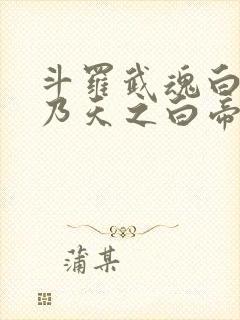 斗羅武魂白
乃天之白帝
蒲某